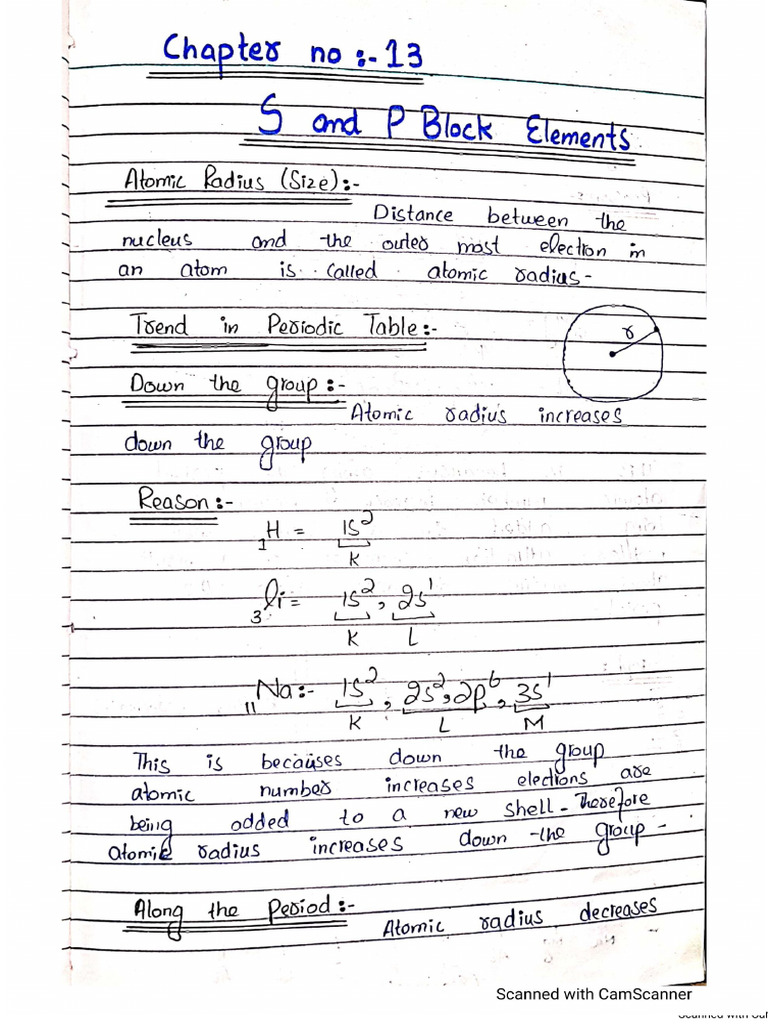 Chapter no :- 13
S and P Block Elements
Atomic Radius (Size):-
Distance between the
nucleus and the outer most election in
an atom is called atomic radius-
Trend in Periodic Table:-
r
Down the group :-
Atomic radius increases
down the group
Reason:-
₁H = 1s²
K
₃li = 1s², 2s¹
K L
₁₁Na:- 1s², 2s², 2p⁶, 3s¹
K L M
This is becauses down the group
atomic number increases elections are
being added to a new shell- Therefore
atomic radius increases down the group-
Along the Period:-
Atomic radius decreases
Scanned with CamScanner